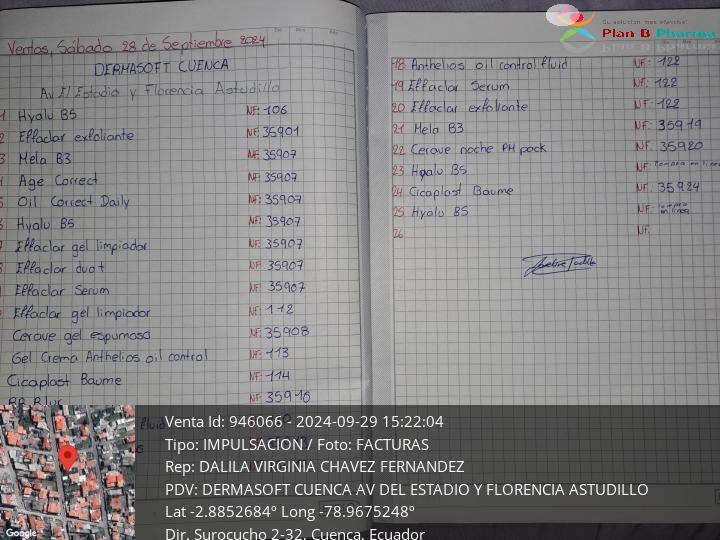 Ventas, Sábado 28 de Septiembre 2024
DERMASOFT CUENCA
Av El Estadio y Florencia Astudillo
1 Hyalu B5 NF: 106
2 Effaclar exfoliante NF: 35901
3 Mela B3 NF: 35907
Age Correct NF: 35907
Oil Correct Daily NF: 35907
Hyalu B5 NF: 35907
Effaclar gel limpiador NF: 35907
Effaclar duo+ NF: 35907
Effaclar Serum NF: 35907
Effaclar gel limpiador NF: 112
Cerave gel espumoso NF: 35908
Gel Crema Anthelios oil control NF: 113
Cicaplast Baume NF: 114
BB Blur NF: 35916
fluid
Su solucion mas efectiva!
Plan B Pharma
18 Anthelios oil control fluid NF: 122
19 Effaclar Serum NF: 122
20 Effaclar exfoliante NF: 122
21 Mela B3 NF: 35919
22 Cerave noche PH pack NF: 35920
23 Hyalu B5 NF: compra en linea
24 Cicaplast Baume NF: 35924
25 Hyalu B5 NF: compra en linea
26 NF:
Venta Id: 946066 - 2024-09-29 15:22:04
Tipo: IMPULSACION / Foto: FACTURAS
Rep: DALILA VIRGINIA CHAVEZ FERNANDEZ
PDV: DERMASOFT CUENCA AV DEL ESTADIO Y FLORENCIA ASTUDILLO
Lat -2.8852684º Long -78.9675248º
Dir. Surocucho 2-32, Cuenca, Ecuador
Google